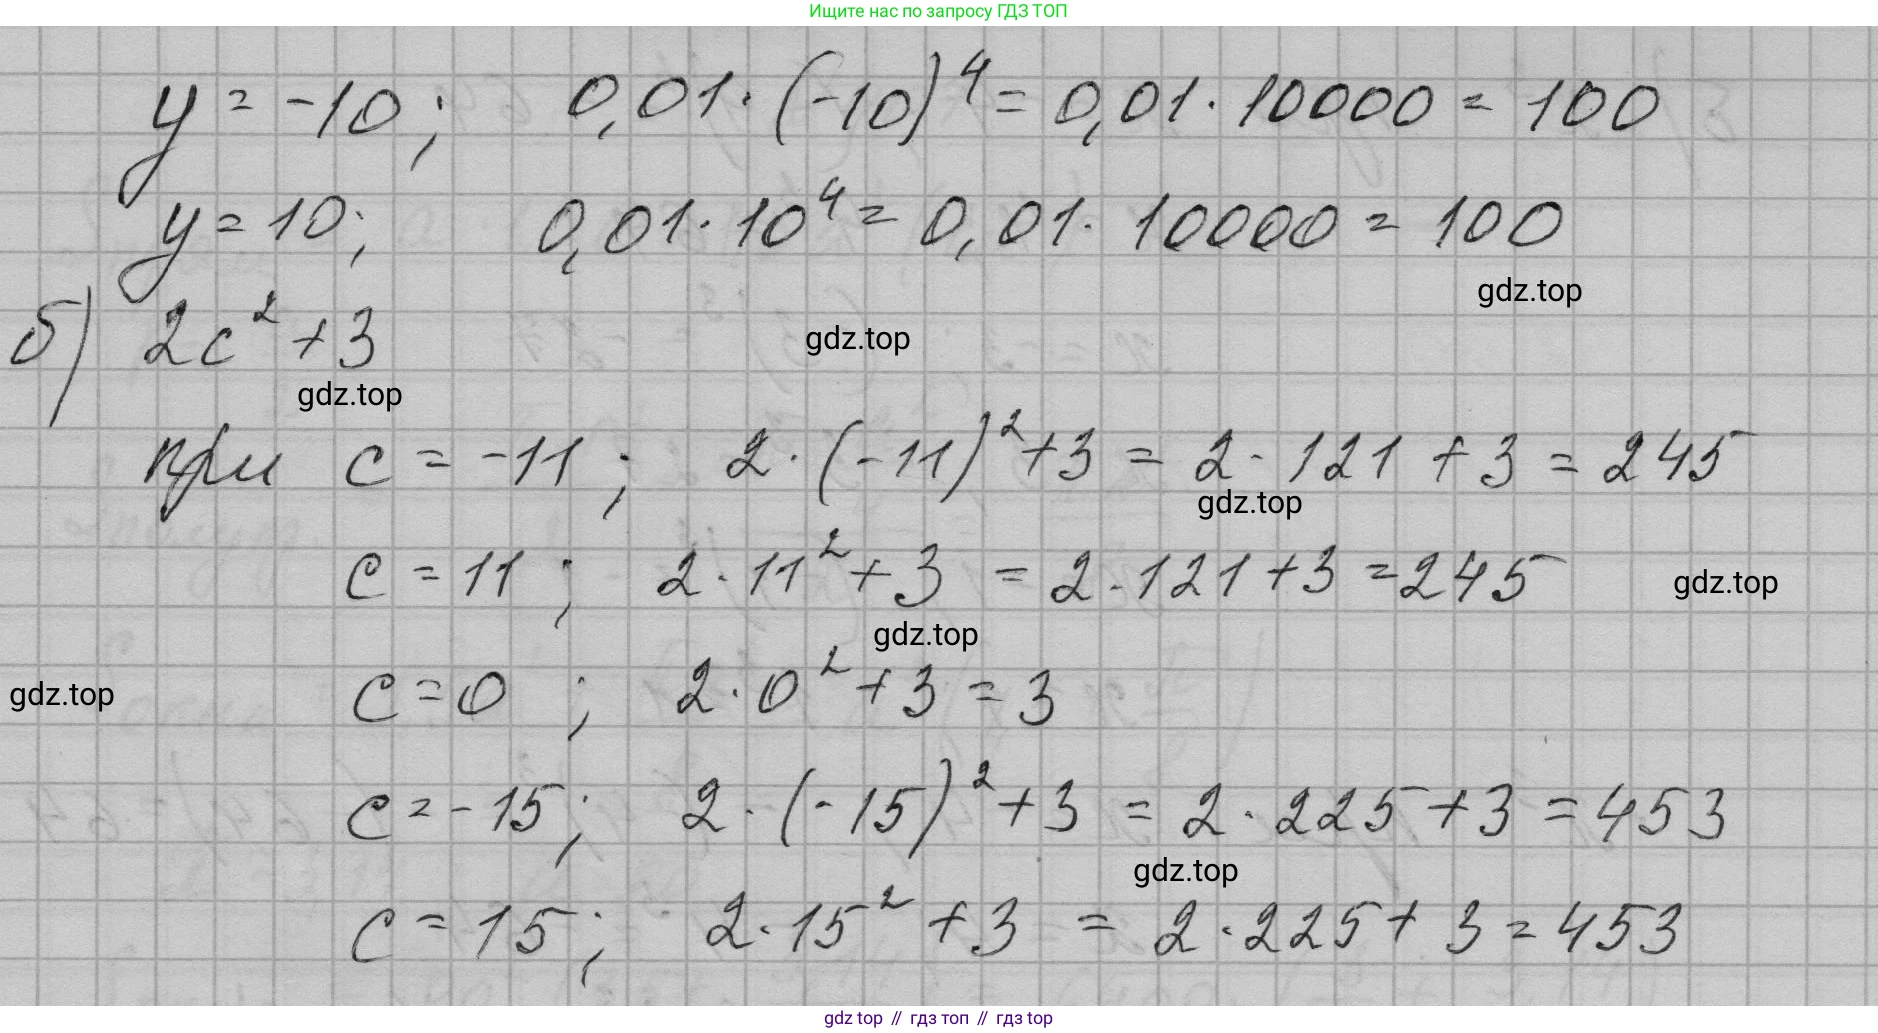 Ищите нас по запросу ГДЗ ТОП
y = -10; 0,01 · (-10)⁴ = 0,01 · 10000 = 100
y = 10; 0,01 · 10⁴ = 0,01 · 10000 = 100
gdz.top
б) 2c² + 3
gdz.top
gdz.top
при c = -11; 2 · (-11)² + 3 = 2 · 121 + 3 = 245
gdz.top
c = 11; 2 · 11² + 3 = 2 · 121 + 3 = 245
gdz.top
gdz.top
gdz.top
c = 0; 2 · 0² + 3 = 3
c = -15; 2 · (-15)² + 3 = 2 · 225 + 3 = 453
gdz.top
c = 15; 2 · 15² + 3 = 2 · 225 + 3 = 453
gdz top // гдз топ // gdz top